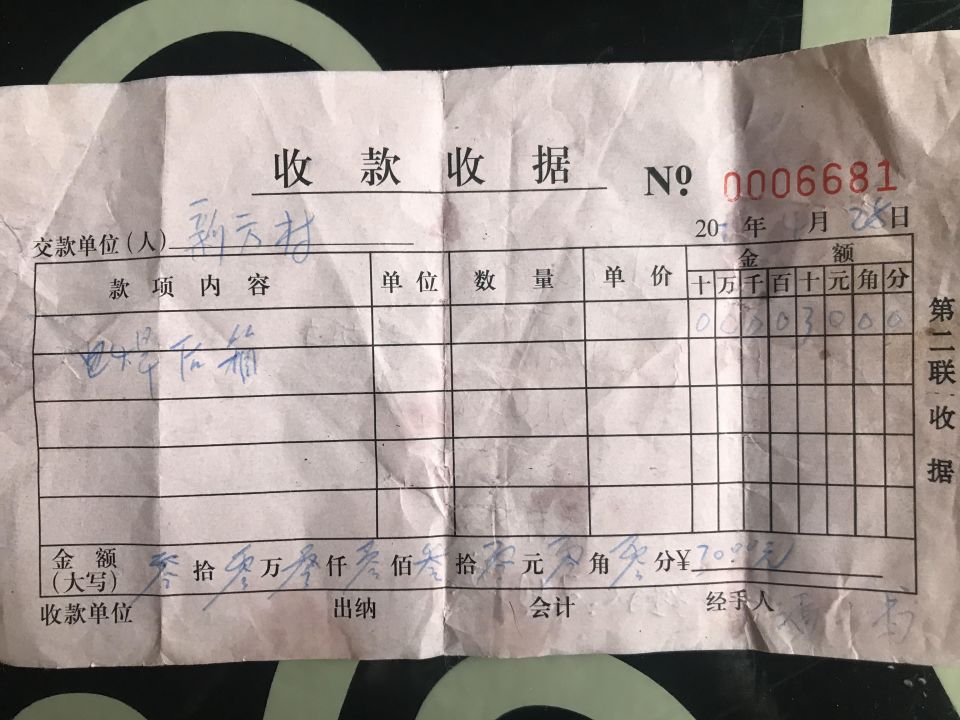 收款收据
Nº 0006681
交款单位(人) 新方村 20 年 4 月 28 日
款项内容 单位 数量 单价 金额
十 万 千 百 十 元 角 分
0 0 0 0 3 0 0 0
电焊后箱
金额(大写) 零 拾 零 万 零 仟 零 佰 叁 拾 零 元 零 角 零 分 ¥ 30.00元
收款单位 出纳 会计 经手人
第二联 收据